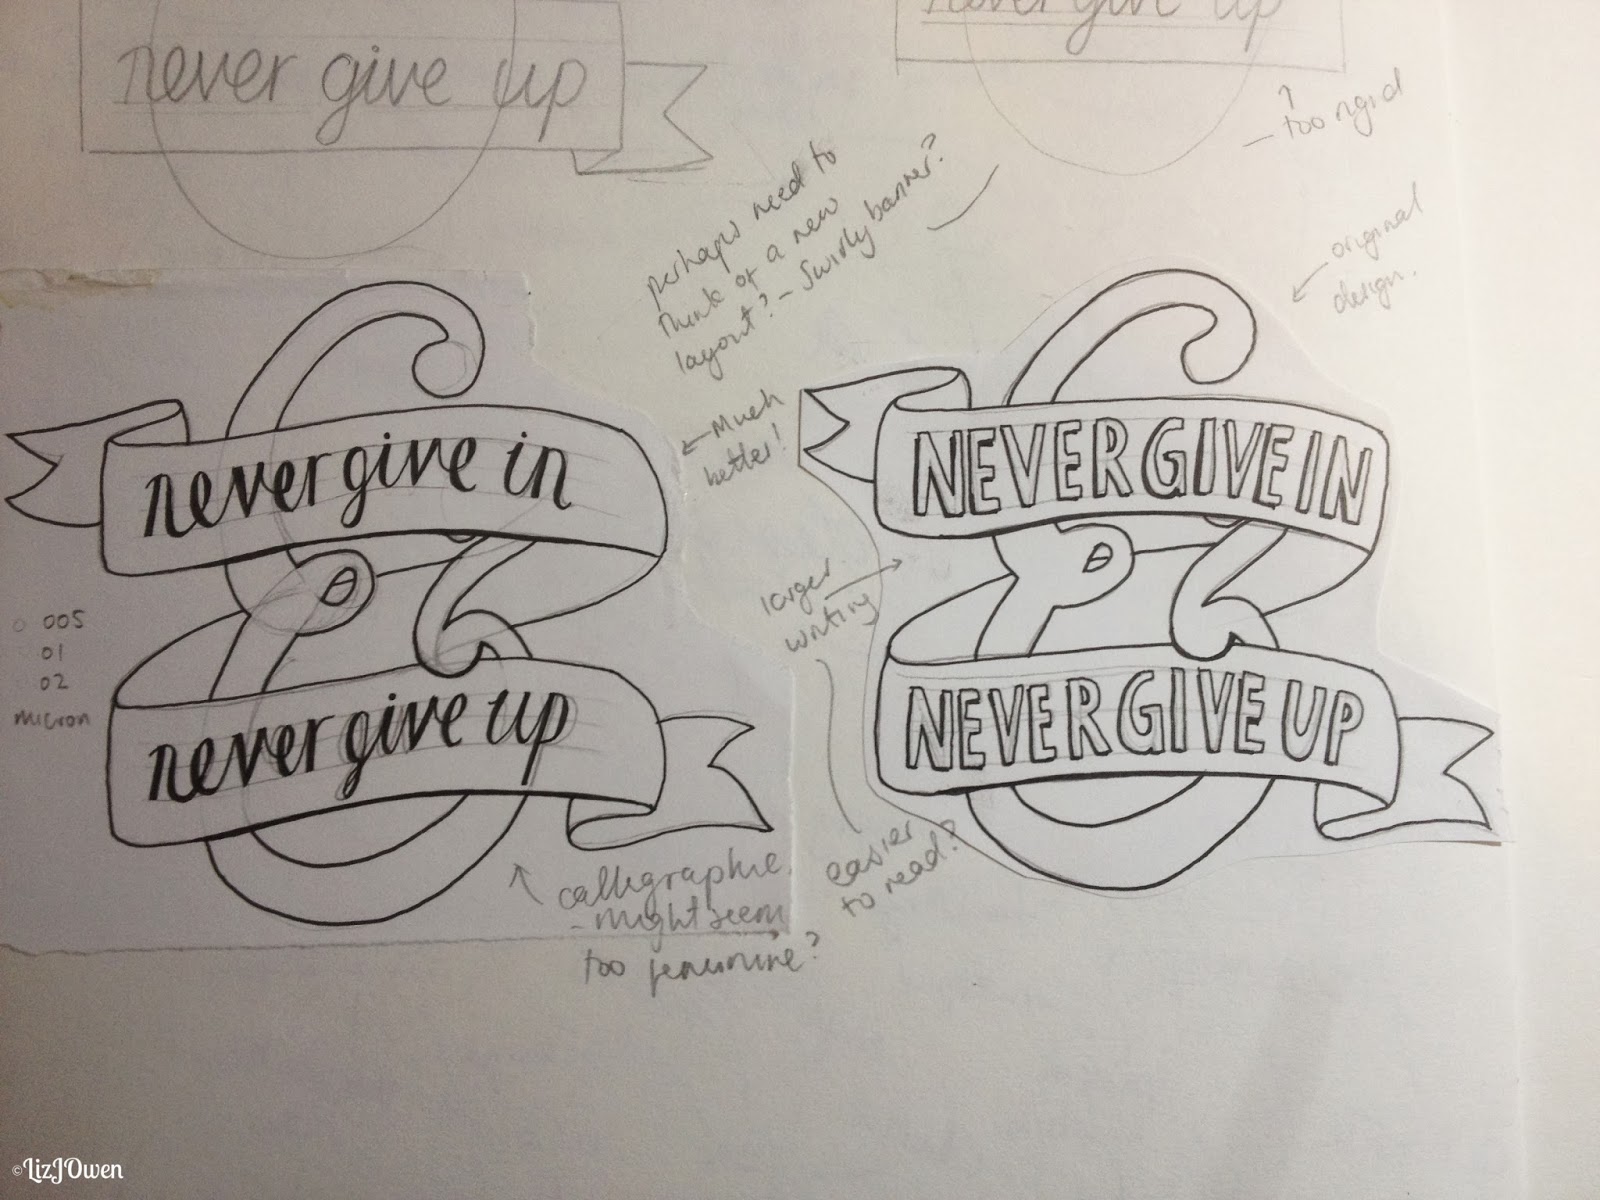 never give up
never give up
↑
- too rigid
perhaps need to
think of a new
layout? - Swirly banner?
← original
design.
← Much
better!
never give in
NEVER GIVE IN
larger
writing
005
01
02
micron
never give up
NEVER GIVE UP
easier
to read?
calligraphic
- might seem
too feminine?
©LizJOwen